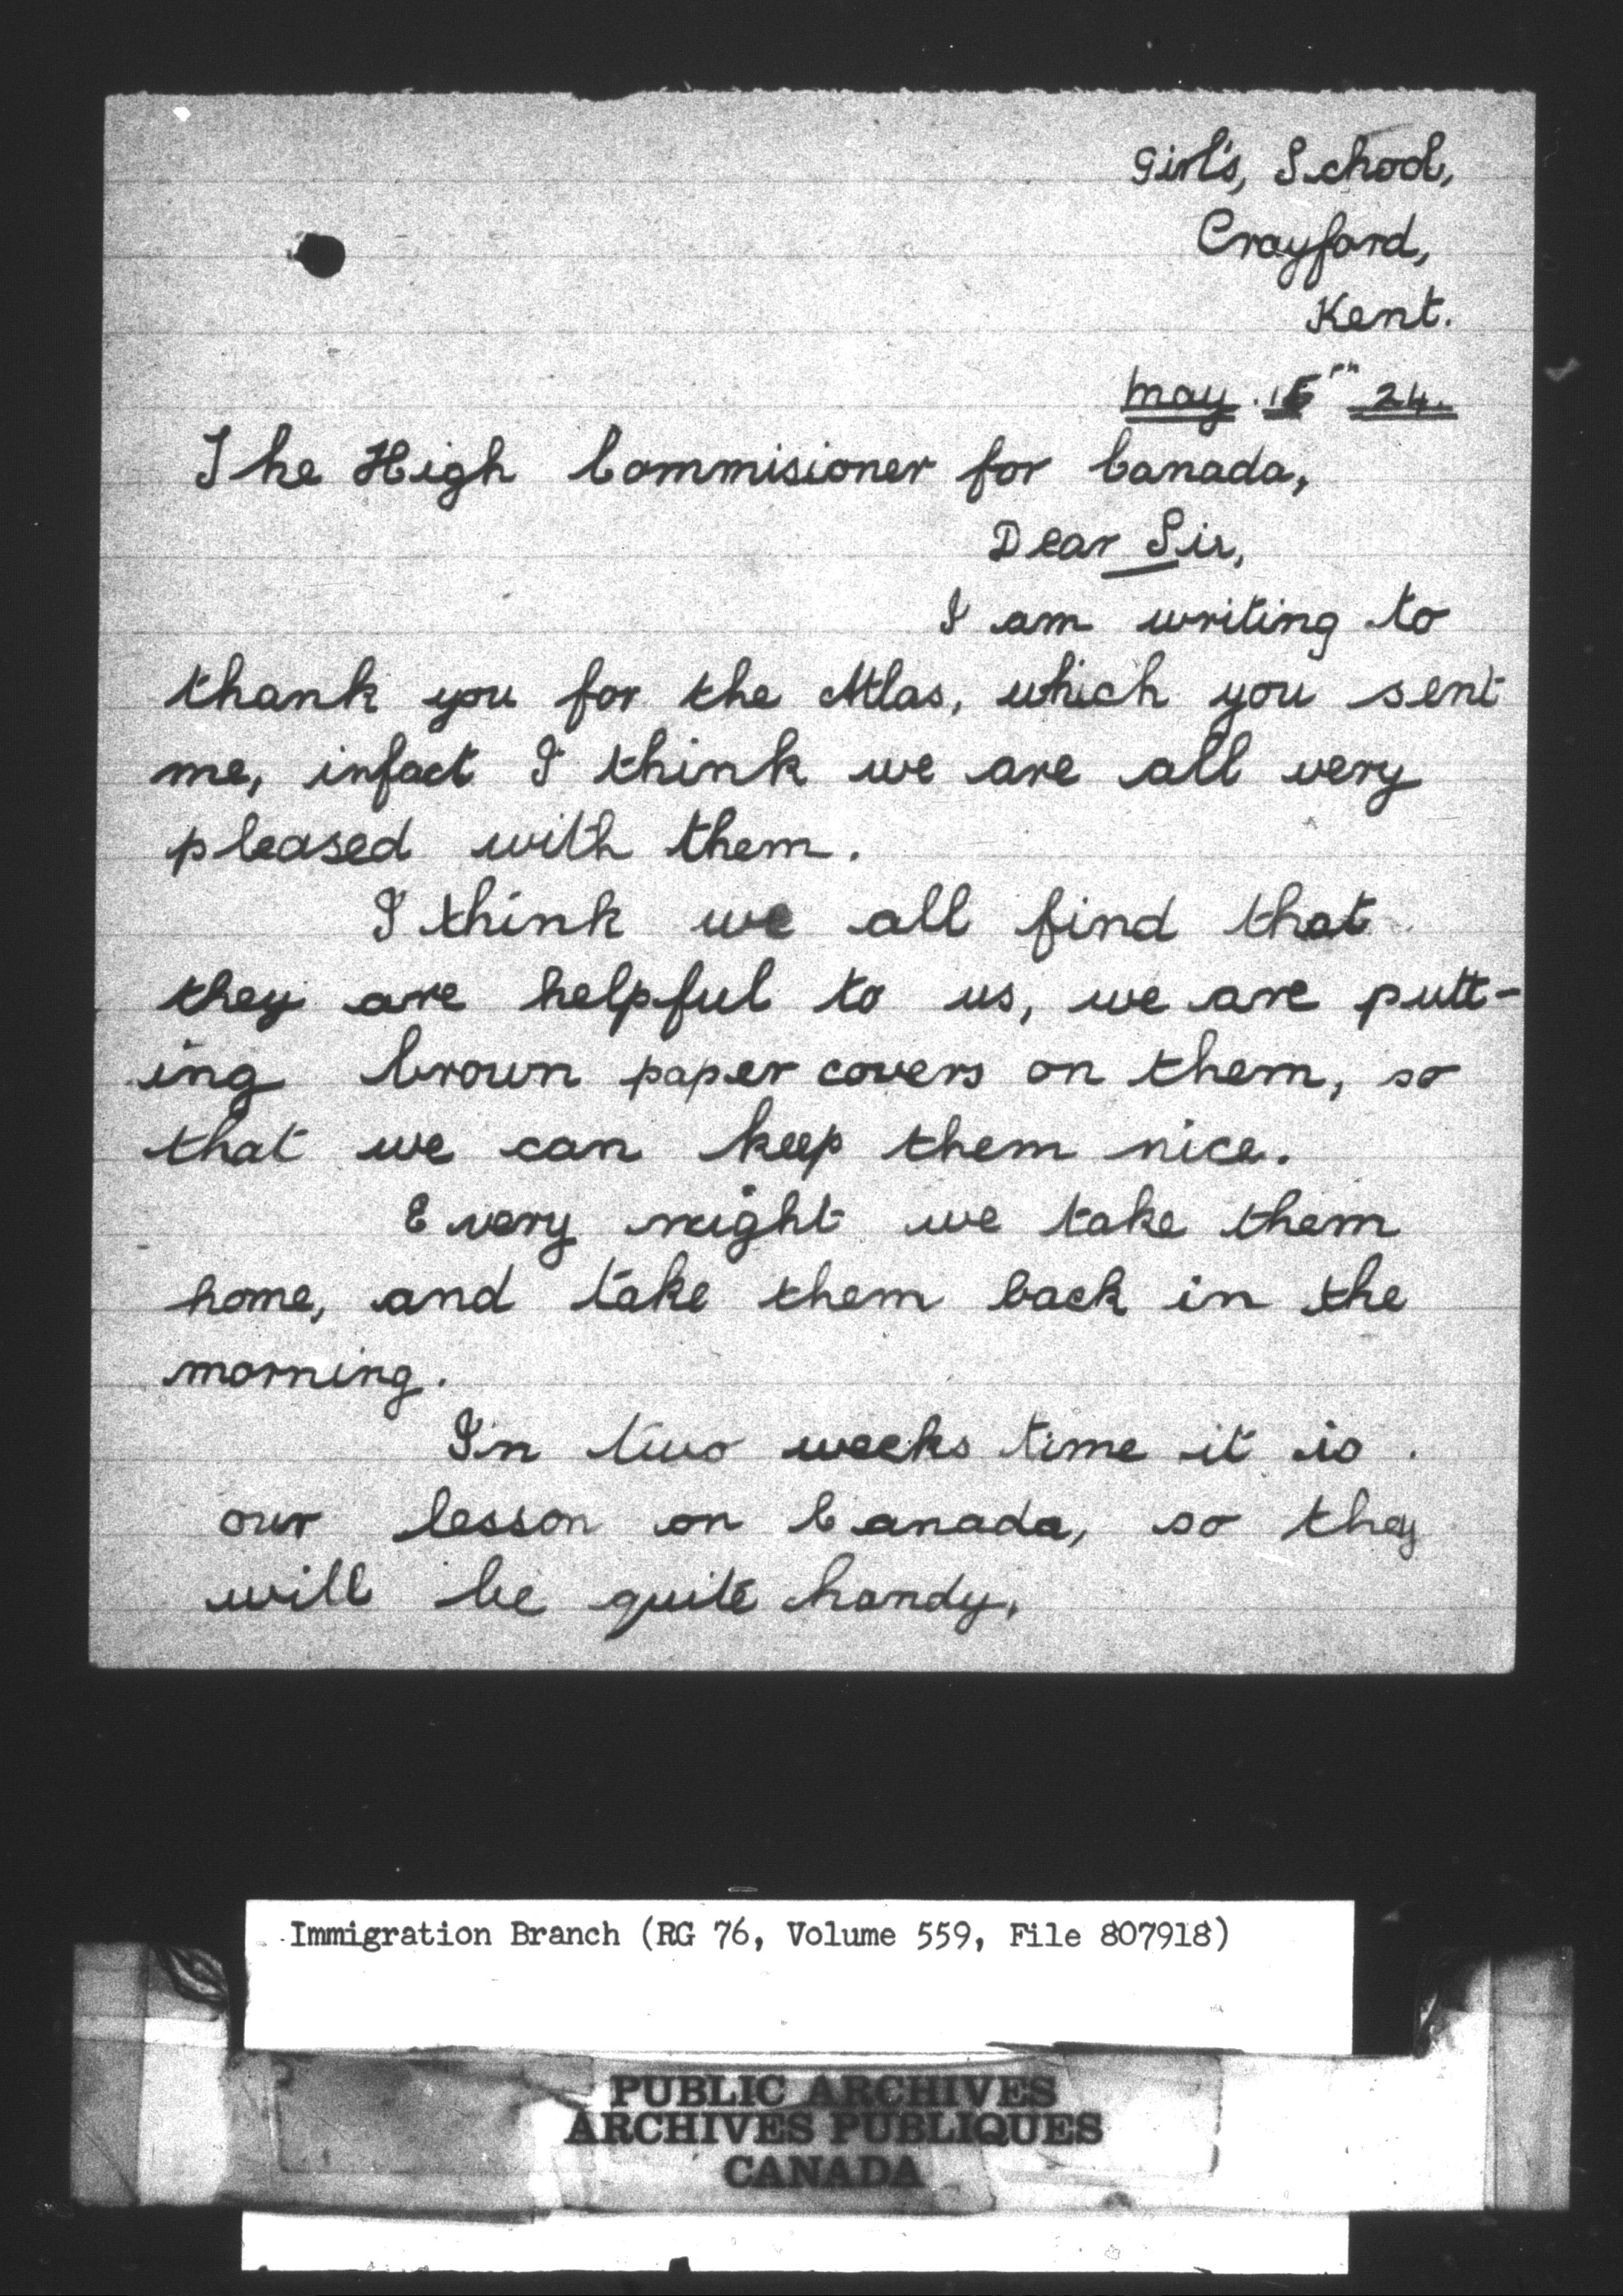 Girl's, School,
Crayford,
Kent.
May. 15th 24.
The High Commisioner for Canada,
Dear Sir,
I am writing to
thank you for the Atlas, which you sent
me, infact I think we are all very
pleased with them.
I think we all find that
they are helpful to us, we are putt-
ing brown paper covers on them, so
that we can keep them nice.
Every night we take them
home, and take them back in the
morning.
In two weeks time it is
our lesson on Canada, so they
will be quite handy.
Immigration Branch (RG 76, Volume 559, File 807918)
PUBLIC ARCHIVES
ARCHIVES PUBLIQUES
CANADA